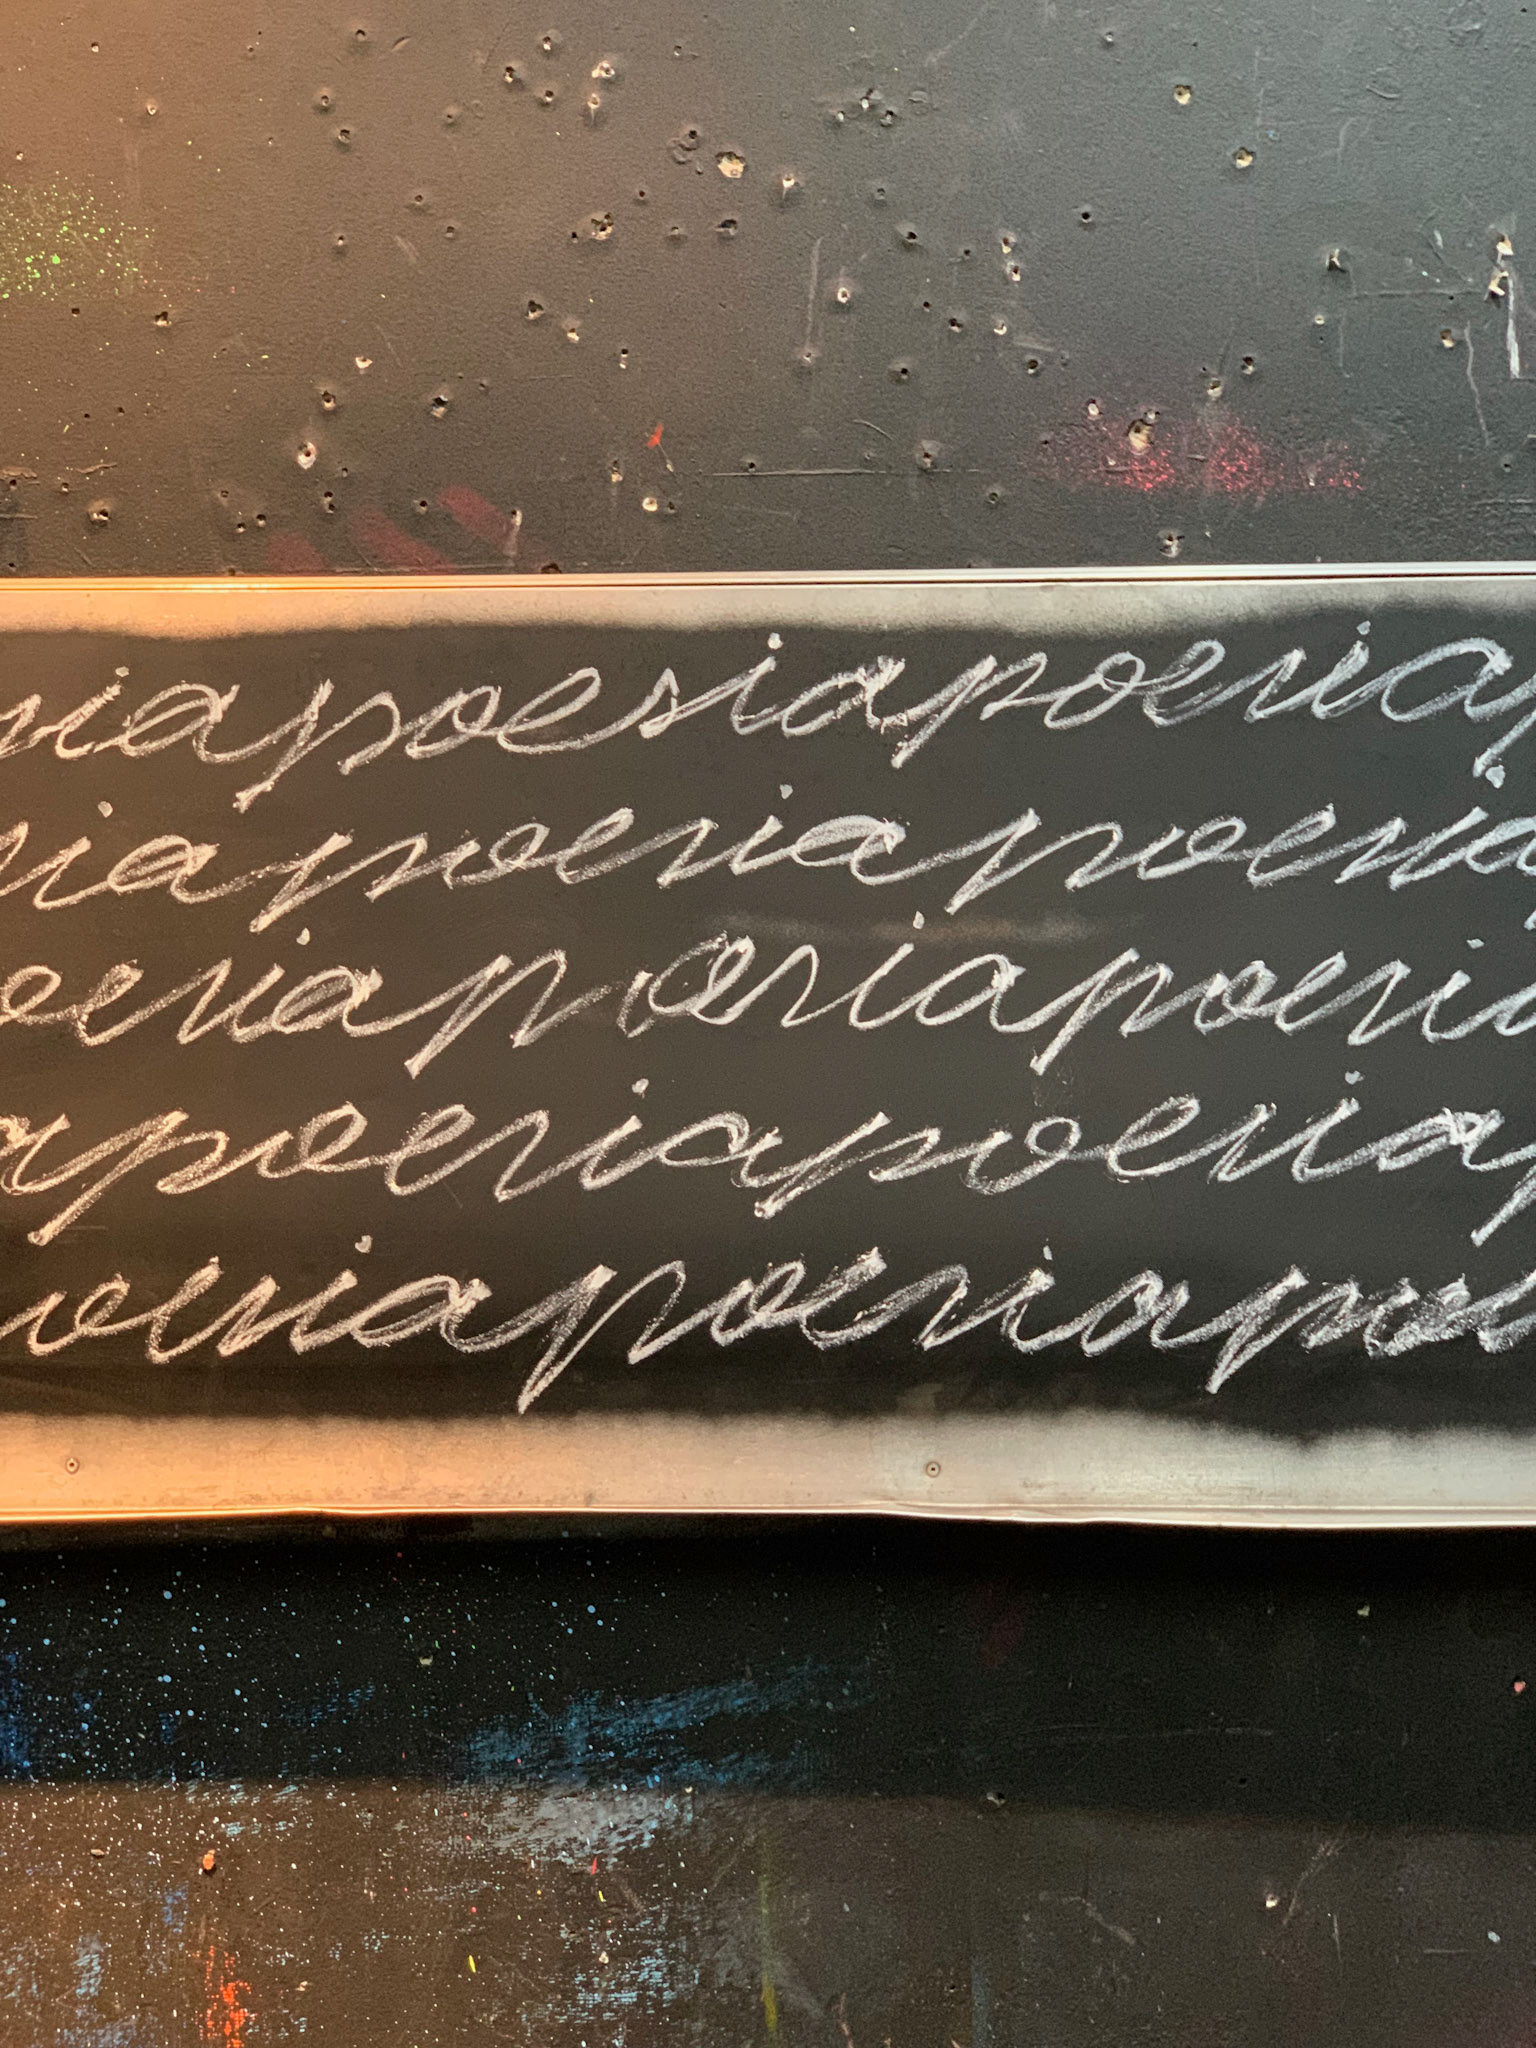 siapoesiapoesiap
siapoesiapoesia
oesiapoesiapoesia
apoesiapoesiap
oesiapoesiapoe